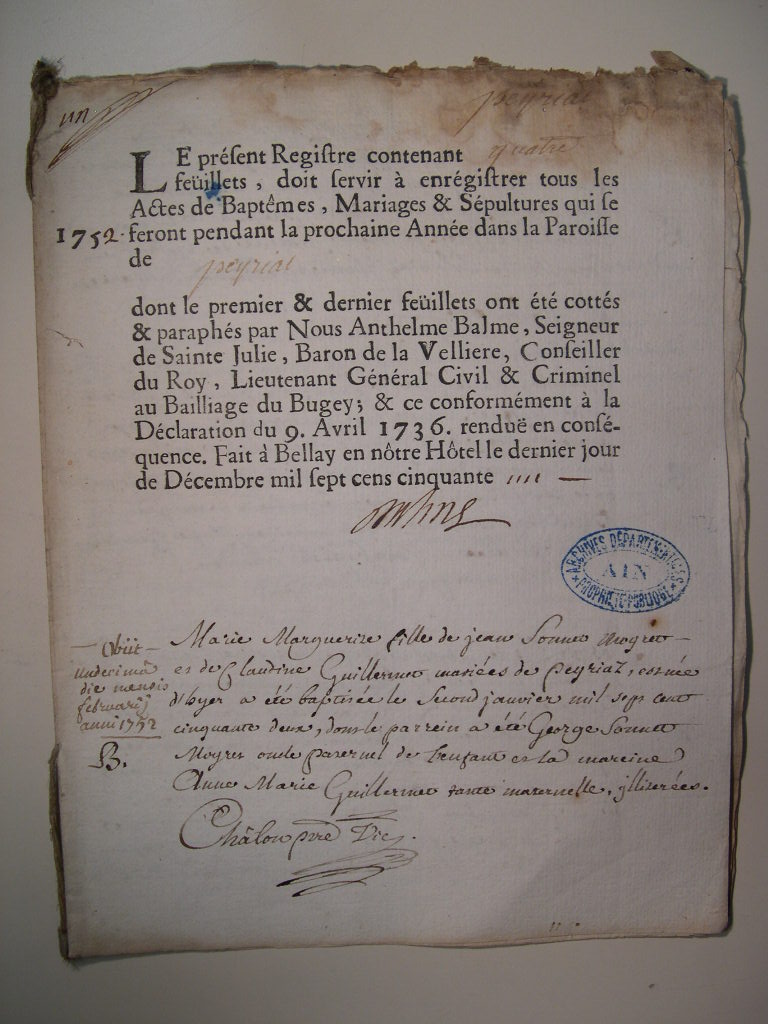 un
peyriat
LE présent Registre contenant quatre
feüillets, doit servir à enrégistrer tous les
Actes de Baptêmes, Mariages & Sépultures qui se
1752. feront pendant la prochaine Année dans la Paroisse
de peyriat
dont le premier & dernier feüillets ont été cottés
& paraphés par Nous Anthelme Balme, Seigneur
de Sainte Julie, Baron de la Velliere, Conseiller
du Roy, Lieutenant Général Civil & Criminel
au Bailliage du Bugey; & ce conformément à la
Déclaration du 9. Avril 1736. renduë en consé-
quence. Fait à Bellay en nôtre Hôtel le dernier jour
de Décembre mil sept cens cinquante
ARCHIVES DÉPARTEMENTALES
AIN
PROPRIÉTÉ PUBLIQUE
Obiit
undecimâ
die mensis
februarij
anni 1752
B.
Marie Marguerite fille de jean Sonnet Moyret
et de Claudine Guillermet mariées de peyriaz, est née
d'hyer a été baptisée le Second janvier mil sept cent
cinquante deux, dont le parrein a été George Sonnet
Moyret oncle paternel de l'enfant et la mareine
Anne Marie Guillermet tante maternelle, illiterées.
Châlon pre Vic.